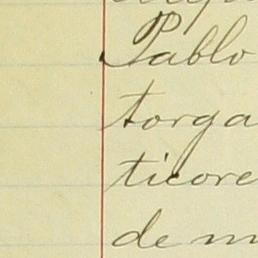 Pablo
torga
ticore
de m